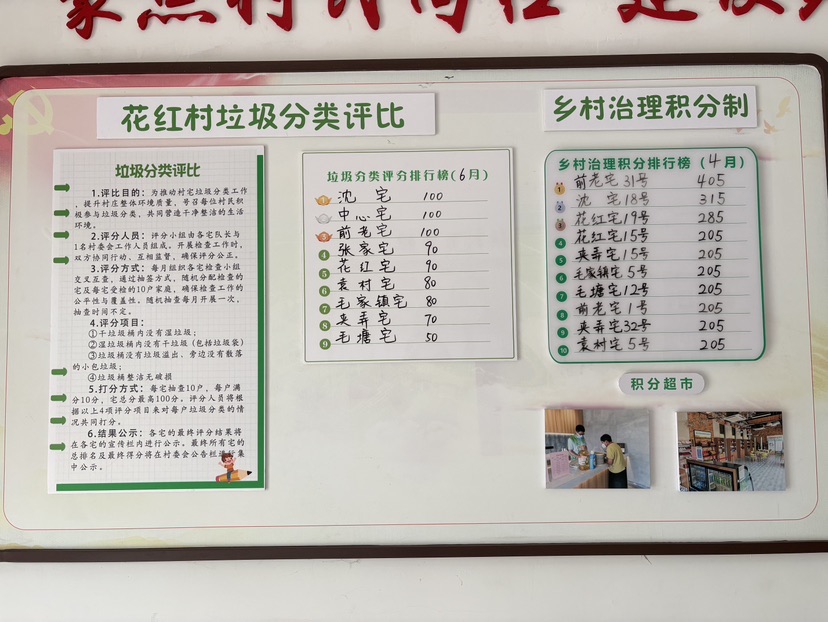 花红村垃圾分类评比
垃圾分类评比
1.评比目的：为推动村宅垃圾分类工作
，提升村庄整体环境质量，号召每位村民积
极参与垃圾分类，共同营造干净整洁的生活
环境。
2.评分人员：评分小组由各宅队长与
1名村委会工作人员组成。开展检查工作时，
双方协同行动、互相监督，确保评分公正。
3.评分方式：每月组织各宅检查小组
交叉互查，通过抽签方式，随机分配检查的
宅及每宅受检的10户家庭，确保检查工作的
公平性与覆盖性。随机抽查每月开展一次，
抽查时间不定。
4.评分项目：
①干垃圾桶内没有湿垃圾；
②湿垃圾桶内没有干垃圾(包括垃圾袋)
③垃圾桶没有垃圾溢出，旁边没有散落
的小包垃圾；
④垃圾桶整洁无破损
5.打分方式：每宅抽查10户，每户满
分10分，宅总分最高100分。评分人员将根
据以上4项评分项目来对每户垃圾分类的情
况共同打分。
6.结果公示：各宅的最终评分结果将
在各宅的宣传栏内进行公示。最终所有宅的
总排名及最终得分将在村委会公告栏进行集
中公示。
垃圾分类评分排行榜(6月)
1 沈 宅 100
2 中心宅 100
3 前老宅 100
4 张家宅 90
5 花红宅 90
6 袁村宅 80
7 毛家镇宅 80
8 夹弄宅 70
9 毛塘宅 50
乡村治理积分制
乡村治理积分排行榜（4月）
1 前老宅31号 405
2 沈 宅18号 315
3 花红宅19号 285
4 花红宅15号 205
5 夹弄宅15号 205
6 毛家镇宅5号 205
7 毛塘宅12号 205
8 前老宅1号 205
9 夹弄宅32号 205
10 袁村宅5号 205
积分超市